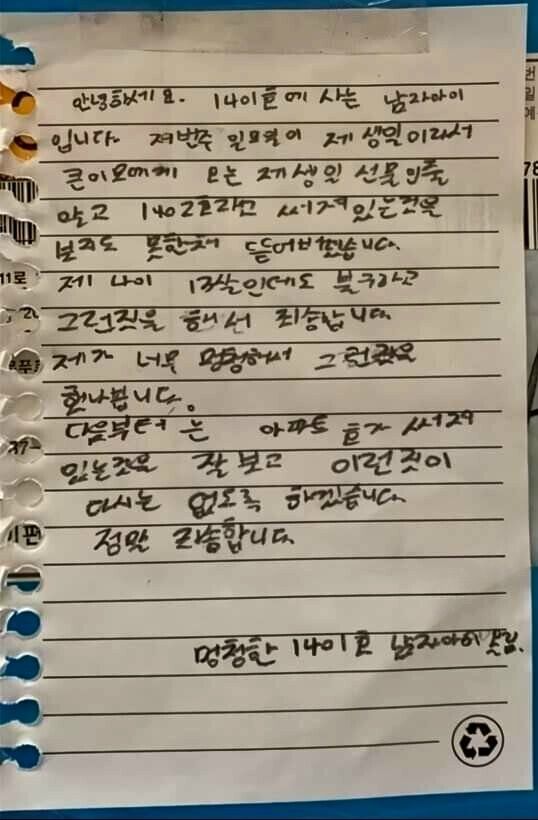 안녕하세요. 1401호에 사는 남자아이
입니다. 저번주 일요일이 제 생일이라서
큰이모에게 오는 제 생일 선물인줄
알고 1402호라고 써져있는것을
보지도 못한채 뜯어버렸습니다.
제 나이 13살인데도 불구하고
그런짓을 해서 죄송합니다.
제가 너무 멍청해서 그런짓을
했나봅니다.
다음부터는 아파트 호가 써져
있는것을 잘보고 이런짓이
다시는 없도록 하겠습니다.
정말 죄송합니다.
멍청한 1401호 남자아이 올림.
11로
37-
이편